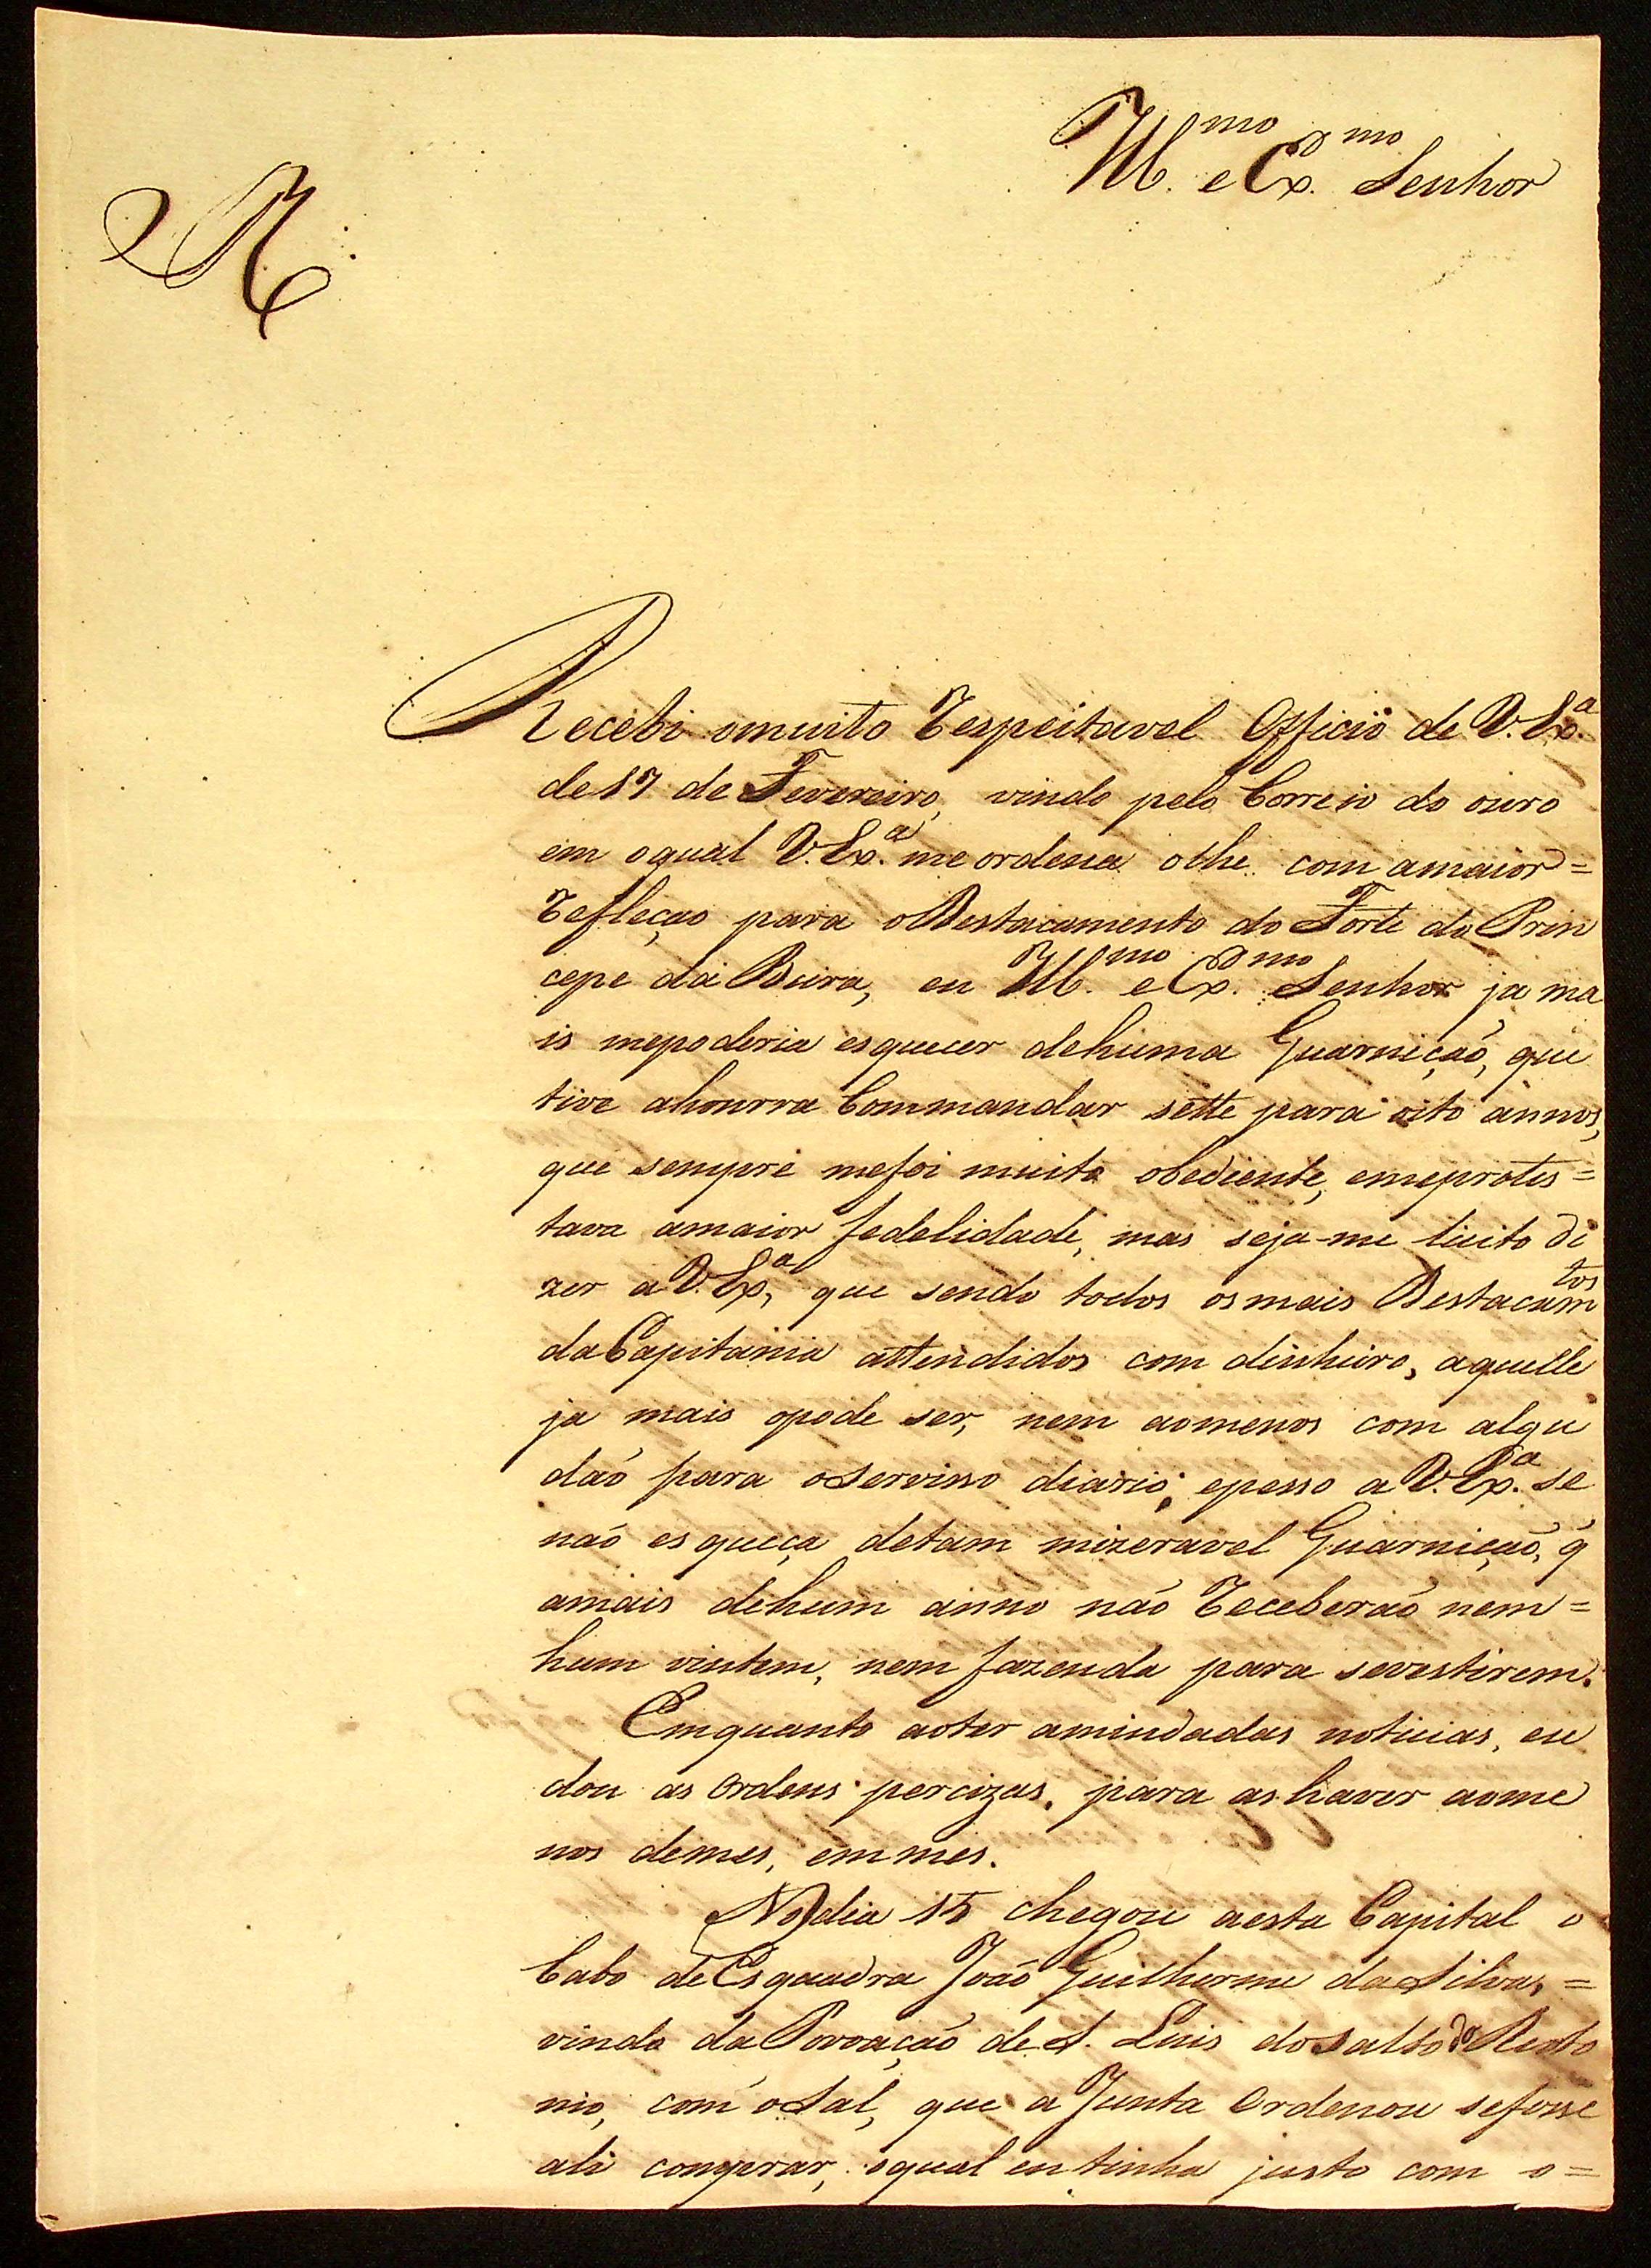 Ill.mo e Ex.mo Senhor
R
Recebi omuito Respeitavel Officio de V. Ex.a
de 17 de Fevereiro, vindo pelo Correio do ouro
em oqual V. Ex.a me ordena olhe com amaior =
Refleçao para o Destacamento do Forte do Prin
cepe da Beira, eu Ill.mo e Ex.mo Senhor ja ma
is mepoderia esquecer dehuma Guarnição, que
tive ahonrra Commandar sette para oito annos,
que sempre mefoi muito obediente, emeprotes =
tava amaior fedelidade, mas seja-me licito di
zer a V. Ex.a, que sendo todos osmais Destacam.tos
da Capitania attendidos com dinheiro, aquelle
ja mais opode ser, nem aomenos com algu
dão para oservisso diario; epesso a V. Ex.a se
não esqueça detam mizeravel Guarnição, q̃
amais dehum anno não Receberão nem =
hum vintem, nem fazenda para sevestirem.
Emquanto aoter amiudadas noticias, eu
dou as Ordens percizas, para ashaver aome
nos demes, emmes.
No dia 15 chegou aesta Capital o
Cabo de Esquadra João Guilherme da Silva, =
vindo da Povoação de S. Luis do Salto do Theoto
nio, com oSal, que a Junta Ordenou sefosse
ali comprar, oqual eu tinha justo com o =